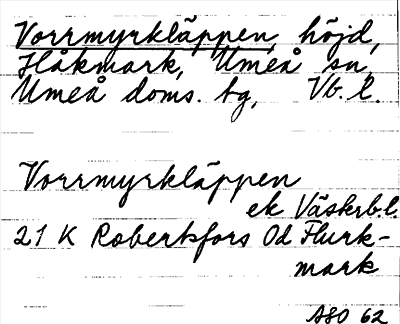 Vorrmyrkläppen, höjd,
Flåkmark, Umeå sn,
Umeå doms. tg, Vb. l.
Vorrmyrkläppen
ek Västerb.l.
21 K Robertsfors Od Flurk-
mark
ASO 62